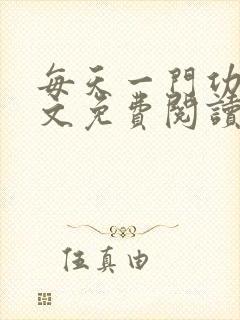 每天一門功
文免費閱讀
伍真由